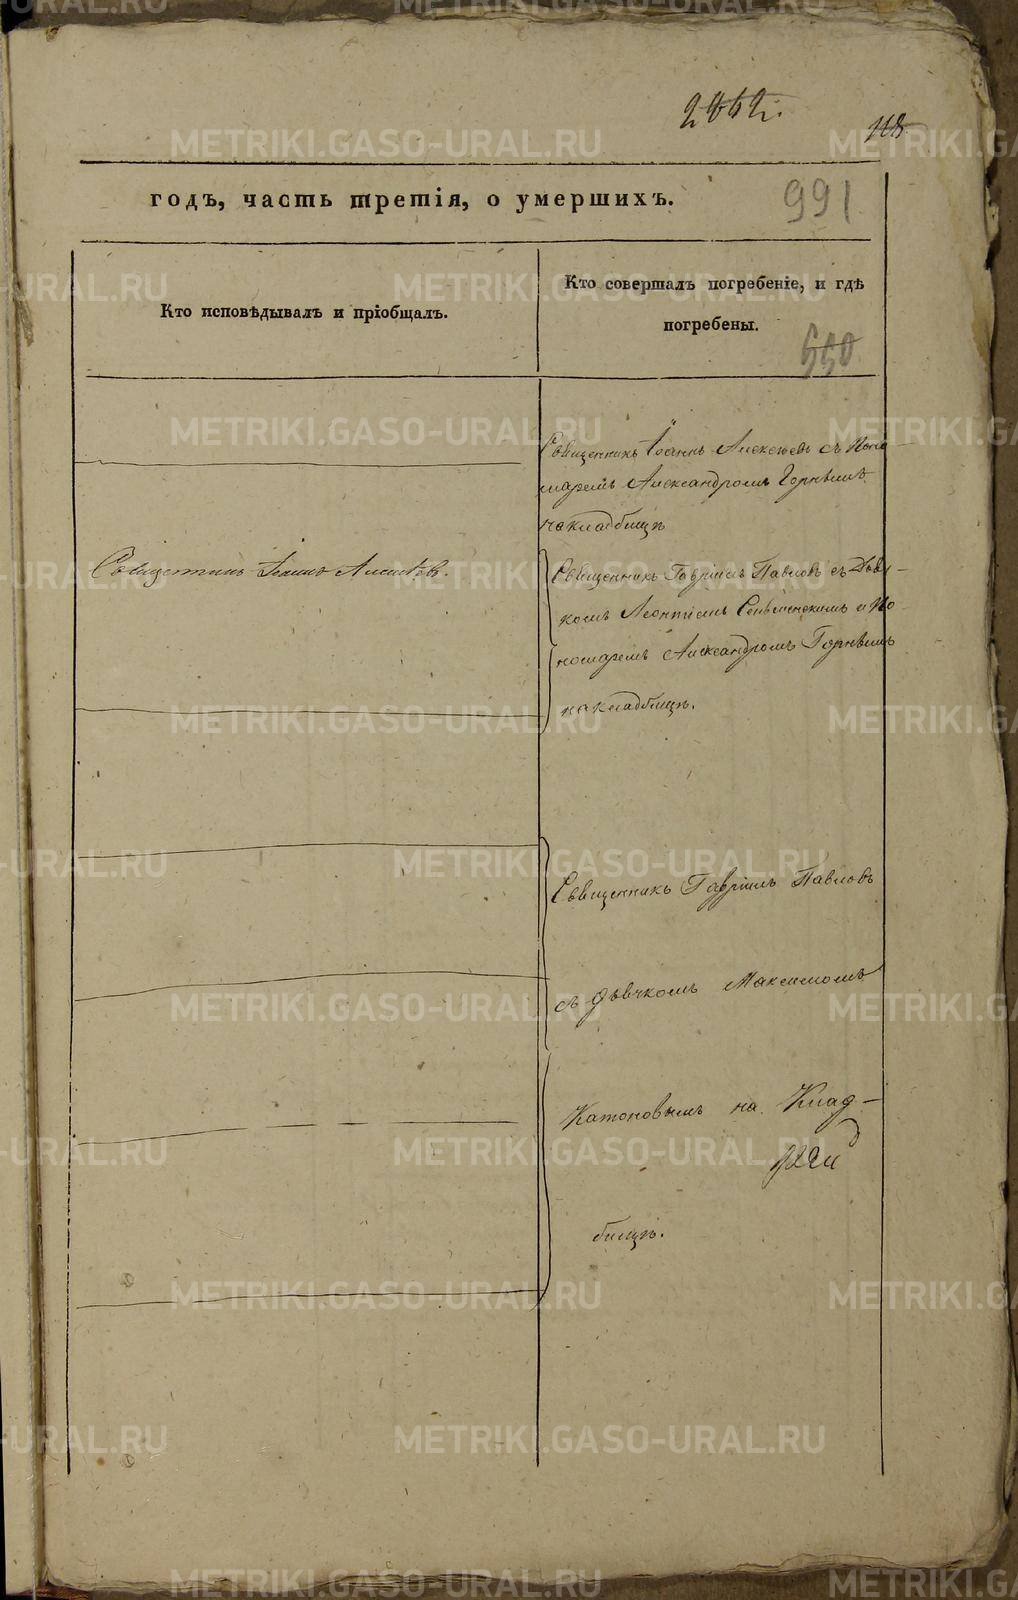 2862.
118
годъ, часть третія, о умершихъ.
991
Кто исповѣдывалъ и пріобщалъ.
Кто совершалъ погребеніе, и гдѣ
погребены.
550
Священникъ Іоаннъ Алексѣевъ съ Поно
маремъ Александромъ Горнымъ
на кладбищѣ
Священникъ Іоаннъ Алексѣевъ.
Священникъ Гавріилъ Павловъ съ Дьяч-
комъ Леонтіемъ и По-
номаремъ Александромъ Горнымъ
на кладбищѣ.
Священникъ Гавріилъ Павловъ
съ дьячкомъ Максимомъ
Катоновымъ на Клад-
бищѣ.
METRIKI.GASO-URAL.RU